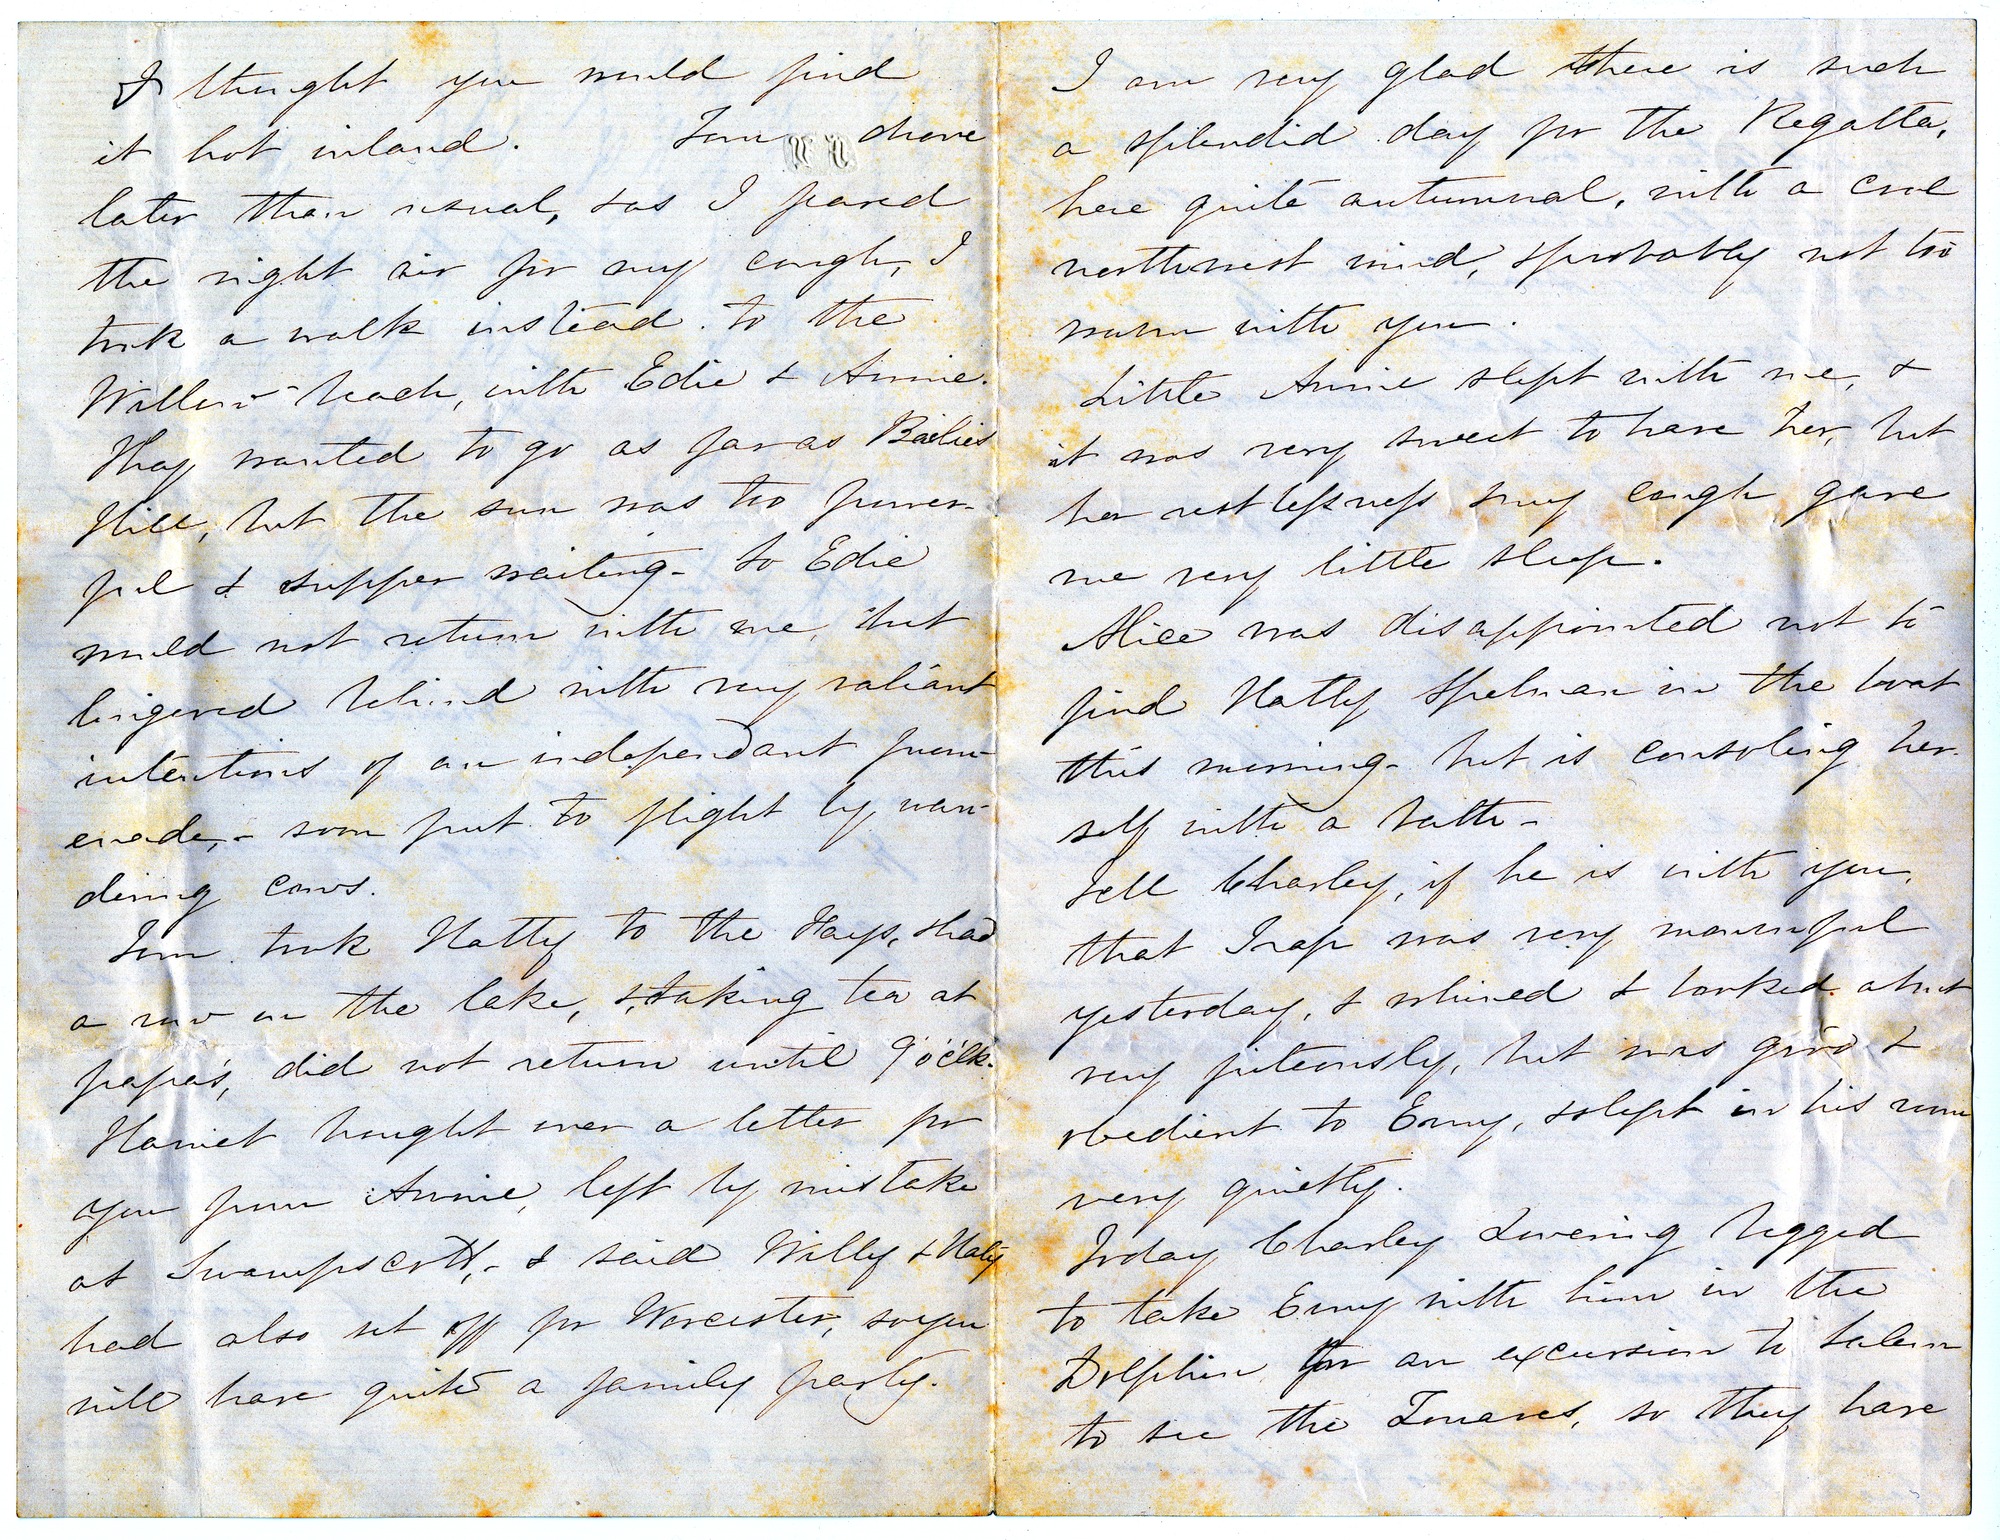 I thought you would find
it hot inland. Tom drove
later than usual, & as I feared
the night air for my cough, I
took a walk instead. to the
Willow beach, with Edie & Annie.
They wanted to go as far as Bailies
Hill, but the sun was too power-
ful & supper waiting - So Edie
would not return with me, but
lingered behind with very valiant
intentions of an independant prom-
enade, - soon put to flight by wan-
dering cows.
Tom took Natty to the Hays, & had
a row on the lake, & taking tea at
papa's, did not return until 9 o'clk.
Harriet brought over a letter for
you from Annie, left by mistake
at Swampscott, - & said Willy & Naty
had also set off for Worcester, so you
will have quite a family party.
I am very glad there is such
a splendid day for the Regatta,
here quite autumnal, with a cool
northwest wind, & probably not too
warm with you.
Little Annie slept with me, &
it was very sweet to have her, but
her restlessness & my cough gave
me very little sleep.
Alice was disappointed not to
find Natty Spelman in the boat
this morning - but is consoling her-
self with a bath -
Tell Charley, if he is with you,
that Trap was very mournful
yesterday, & whined & looked about
very piteously, but was good &
obedient to Emy, & slept in his room
very quietly.
Today Charley Lovering begged
to take Emy with him in the
Dolphin for an excursion to Salem
to see the Zouaves, so they have